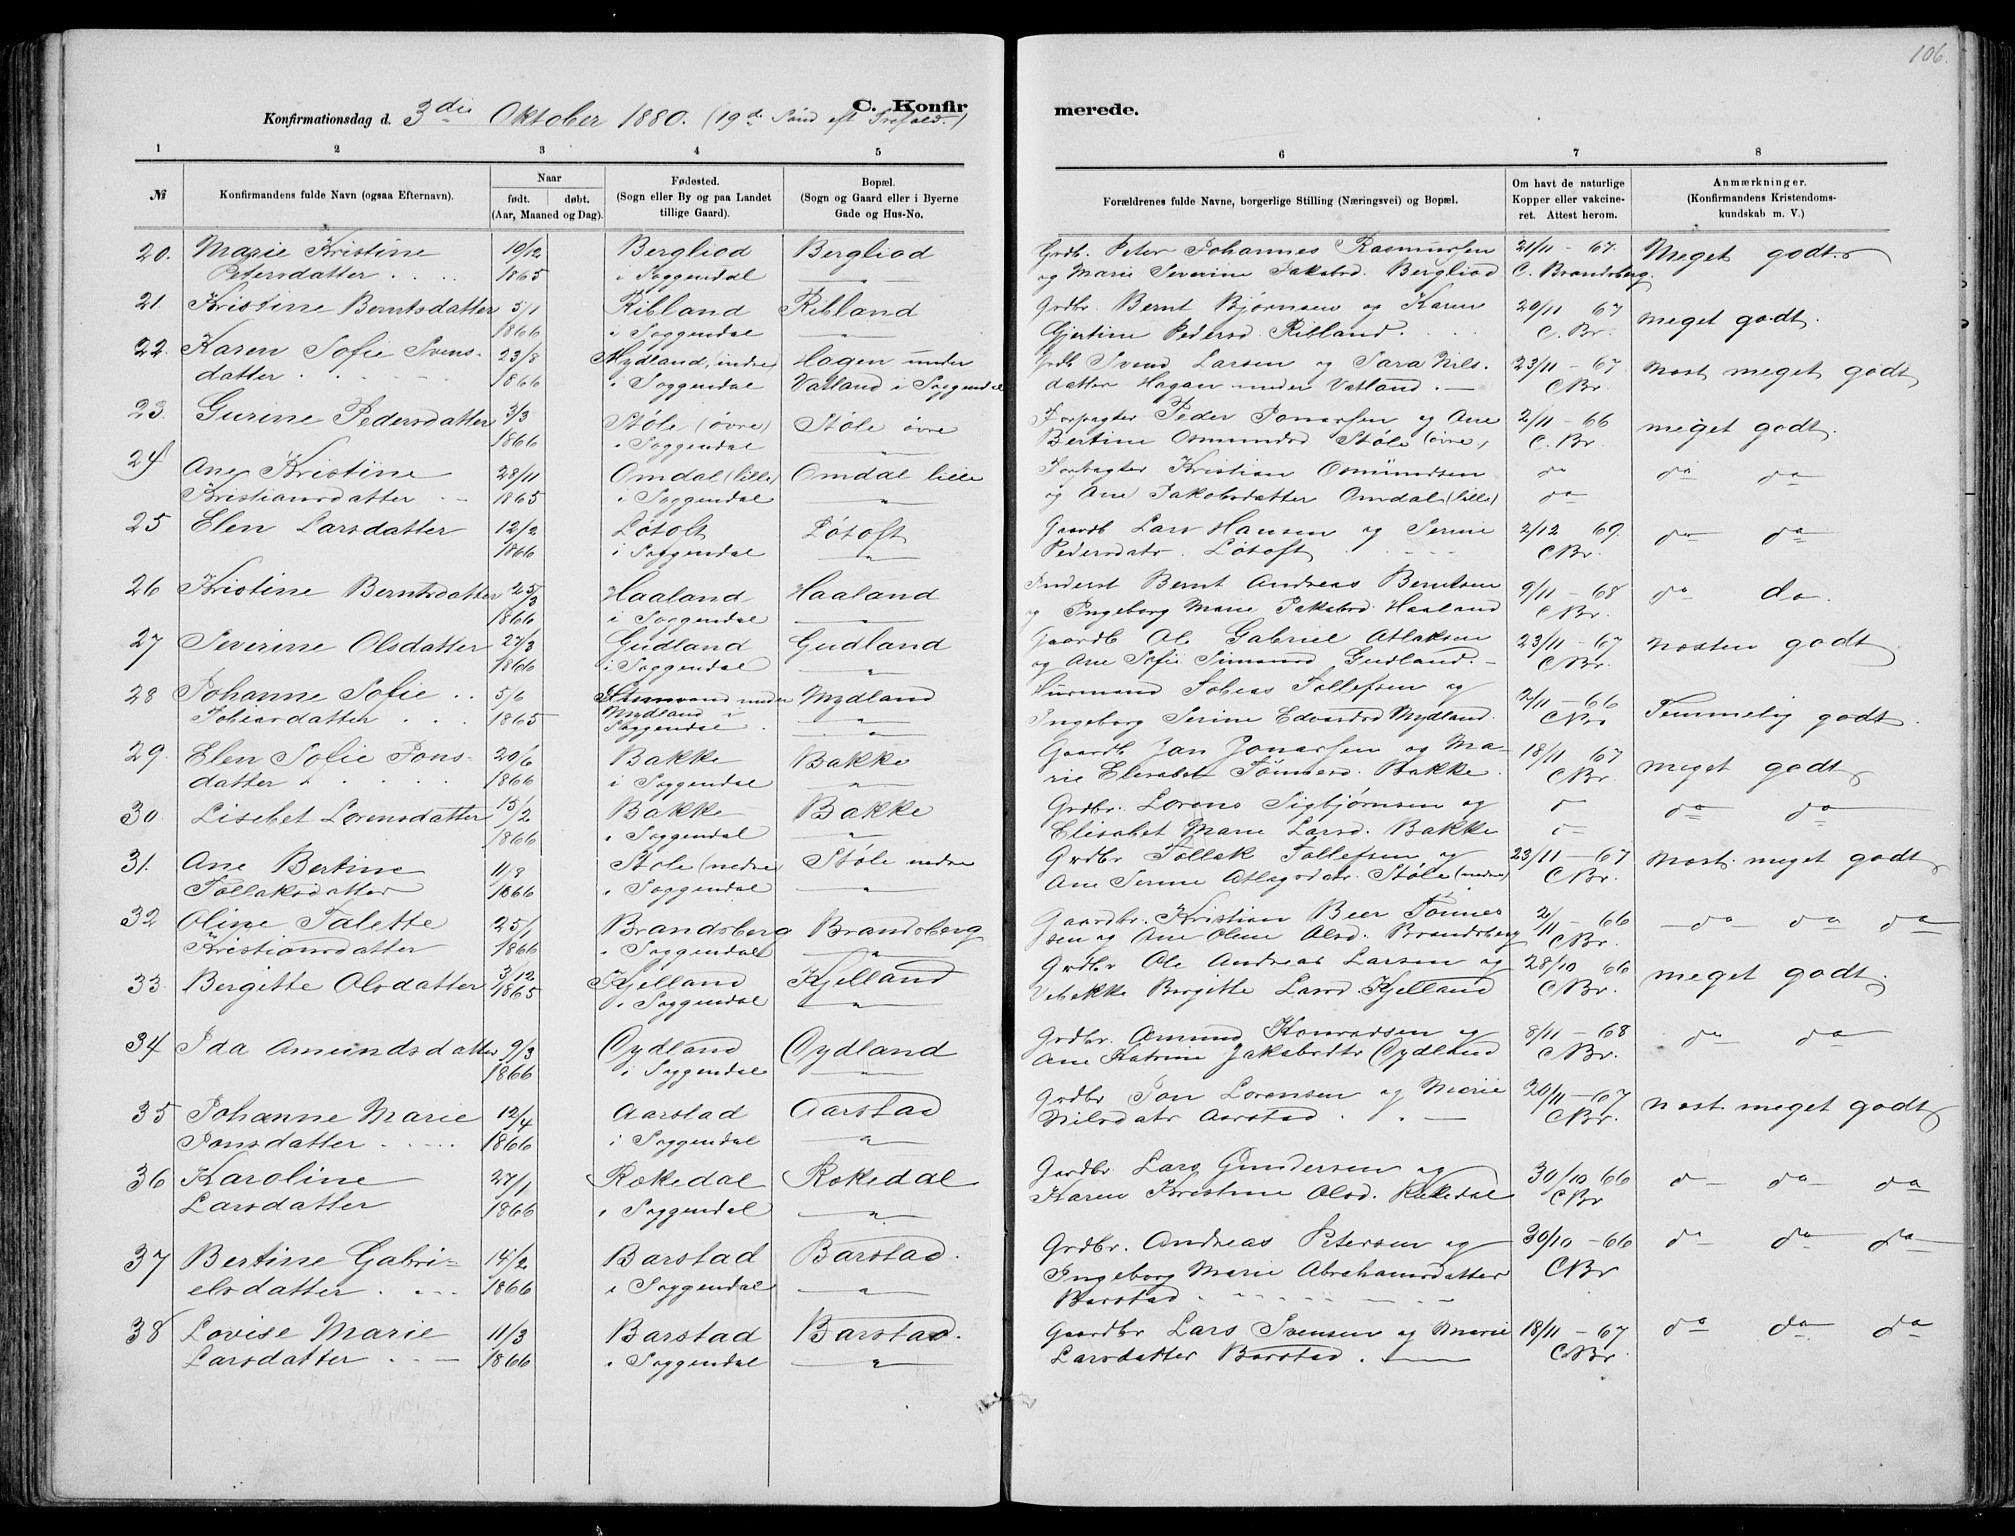 106.
Konfirmationsdag d. 3die Oktober 1880. (19de Sønd eft Trefold.)
C. Konfirmerede.
1 2 3 4 5 6 7 8
№ Konfirmandens fulde Navn (ogsaa Efternavn). Naar født. døbt. (Aar, Maaned og Dag). Fødested. (Sogn eller By og paa Landet tillige Gaard). Bopæl. (Sogn og Gaard eller i Byerne Gade og Hus-No. Forældrenes fulde Navne, borgerlige Stilling (Næringsvei) og Bopæl. Om havt de naturlige Kopper eller vakcineret. Attest herom. Anmærkninger. (Konfirmandens Kristendomskundskab m. V.)
20. Marie Kristine 10/12 Bergliod Bergliod Grdb. Peter Johannes Rasmussen 21/11 - 67. Meget godt.
Petersdatter . . . 1865 i Soggendal — " — og Marie Severine Jakobsd. Bergliod C. Brandsberg.
21. Kristine Berntsdatter 5/1 Ribland Ribland Grdbr. Bernt Bjørnsen og Karen 20/11 67 meget godt.
1866 i Soggendal — " — Gjertine Pedersd. Ribland. C. Br.
22. Karen Sofie Svens- 23/8 Mydland, indre Hagen under Grdb Svend Larsen og Sara Nils- 23/11 - 67. Næst meget godt
datter . . . 1866 i Soggendal Vatland i Soggendal datter Hagan under Vatland. — CBr.
23. Gurine Pedersdatter 3/3 Støle (øvre) Støle øvre Forpagter Peder Jonassen og Ane 2/11 - 66 meget godt.
1866 i Soggendal — " — Bertine Osmundsd Støle (øvre) C. Br.
24 Ane Kristine 28/11 Omdal (lille) Omdal lille Forpagter Kristian Osmundsen do do do
Kristiansdatter . - 1865 i Soggendal — " — og Ane Jakobsdatter Omdal (lille) do
25 Elen Larsdatter 12/2 Løtoft Løtoft Gaardb Lars Hansen og Serine 2/12 69. do do
1866 i Soggendal — " — Pedersdatr. Løtoft CBr.
26 Kristine Berntsdatter 25/3 Haaland Haaland Inderst Bernt Andreas Berntsen 9/11 - 68 do do.
1866 i Soggendal — " — og Ingeborg Marie Jakobsd. Haaland CBr.
27 Severine Olsdatter 27/3 Gudland Gudland Gaardb Ole Gabriel Atlaksen 23/11 - 67 næsten godt
1866 i Soggendal — " — og Ane Sofie Simonsd Gudland. - CBr.
28 Johanne Sofie . . 5/6 under Mydland Husmand Tobias Tollefsen og 2/11 - 66 Temmelig godt.
Tobiasdatter . . . 1865 Mydland i Soggendal — " — Ingeborg Serine Edvardsd Mydland. CBr
29. Elen Sofie Jons- 20/6 Bakke Bakke Gaardb Jan Jonassen og Ma- 18/11 67 meget godt
datter . . . 1866 i Soggendal — " — rie Elisabet Tønnesd. Bakke. CBr.
30. Lisebet Lorensdatter 13/2 Bakke Bakke Grdbr. Lorens Sigbjørnsen og do do do
1866 i Soggendal — " — Elisabet Marie Larsd. Bakke do
31. Ane Bertine 11/8 Støle (nedre Støle nedre Grdbr Tollak Tollefsen og 23/11 - 67 næst. meget godt
Tollaksdatter 1866 i Soggendal — " — Ane Serine Atlagsdatr. Støle (nedre) CBr.
32 Oline Talette 25/1 Brandsberg Brandsberg Gaardbr. Kristian Beer Tønnes 2/11 - 66 do do do
Kristiansdatter 1866 i Soggendal — " — sen og Ane Oline Olsd. Brandsberg CBr.
33. Bergitte Olsdatter 3/12 Kjelland Kjelland Grdbr Ole Andreas Larsen og 28/10 66 meget godt.
1865 i Soggendal — " — Vebekke Bergitte Larsd. Kjelland CBr.
34 Ida Amundsdatter 9/3 Eydland Eydland Grdbr. Amund Konradsen og 8/11 - 68 do do
1866 i Soggendal — " — Ane Katrine Jakobsdtr Eydland CBr.
35 Johanne Marie 12/4 Aarstad Aarstad Grdbr Jon Lorensen og Marie 20/11 - 67 næst. meget godt
Jonsdatter . . . 1866 i Soggendal — " — Nilsdatr Aarstad . . — CBr.
36 Karoline 27/1 Rekedal Rekedal Gardbr Lars Gundersen og 30/10 66 do do do
Larsdatter 1866 i Soggendal — " — Karen Kristine Olsd. Rekedal CBr
37 Bertine Gabri- 14/2 Barstad Barstad. Grdbr. Andreas Petersen og 30/10 - 66 do do do
elsdatter . . . 1866 i Soggendal — " — Ingeborg Marie Abrahamsdatter CBr
Barstad
38 Lovise Marie 11/3 Barstad Barstad. Gaardbr Lars Svensen og Marie 18/11 - 67 do do do
Larsdatter . . — 1866 i Soggendal — " — Larsdatter Barstad. — CBr.